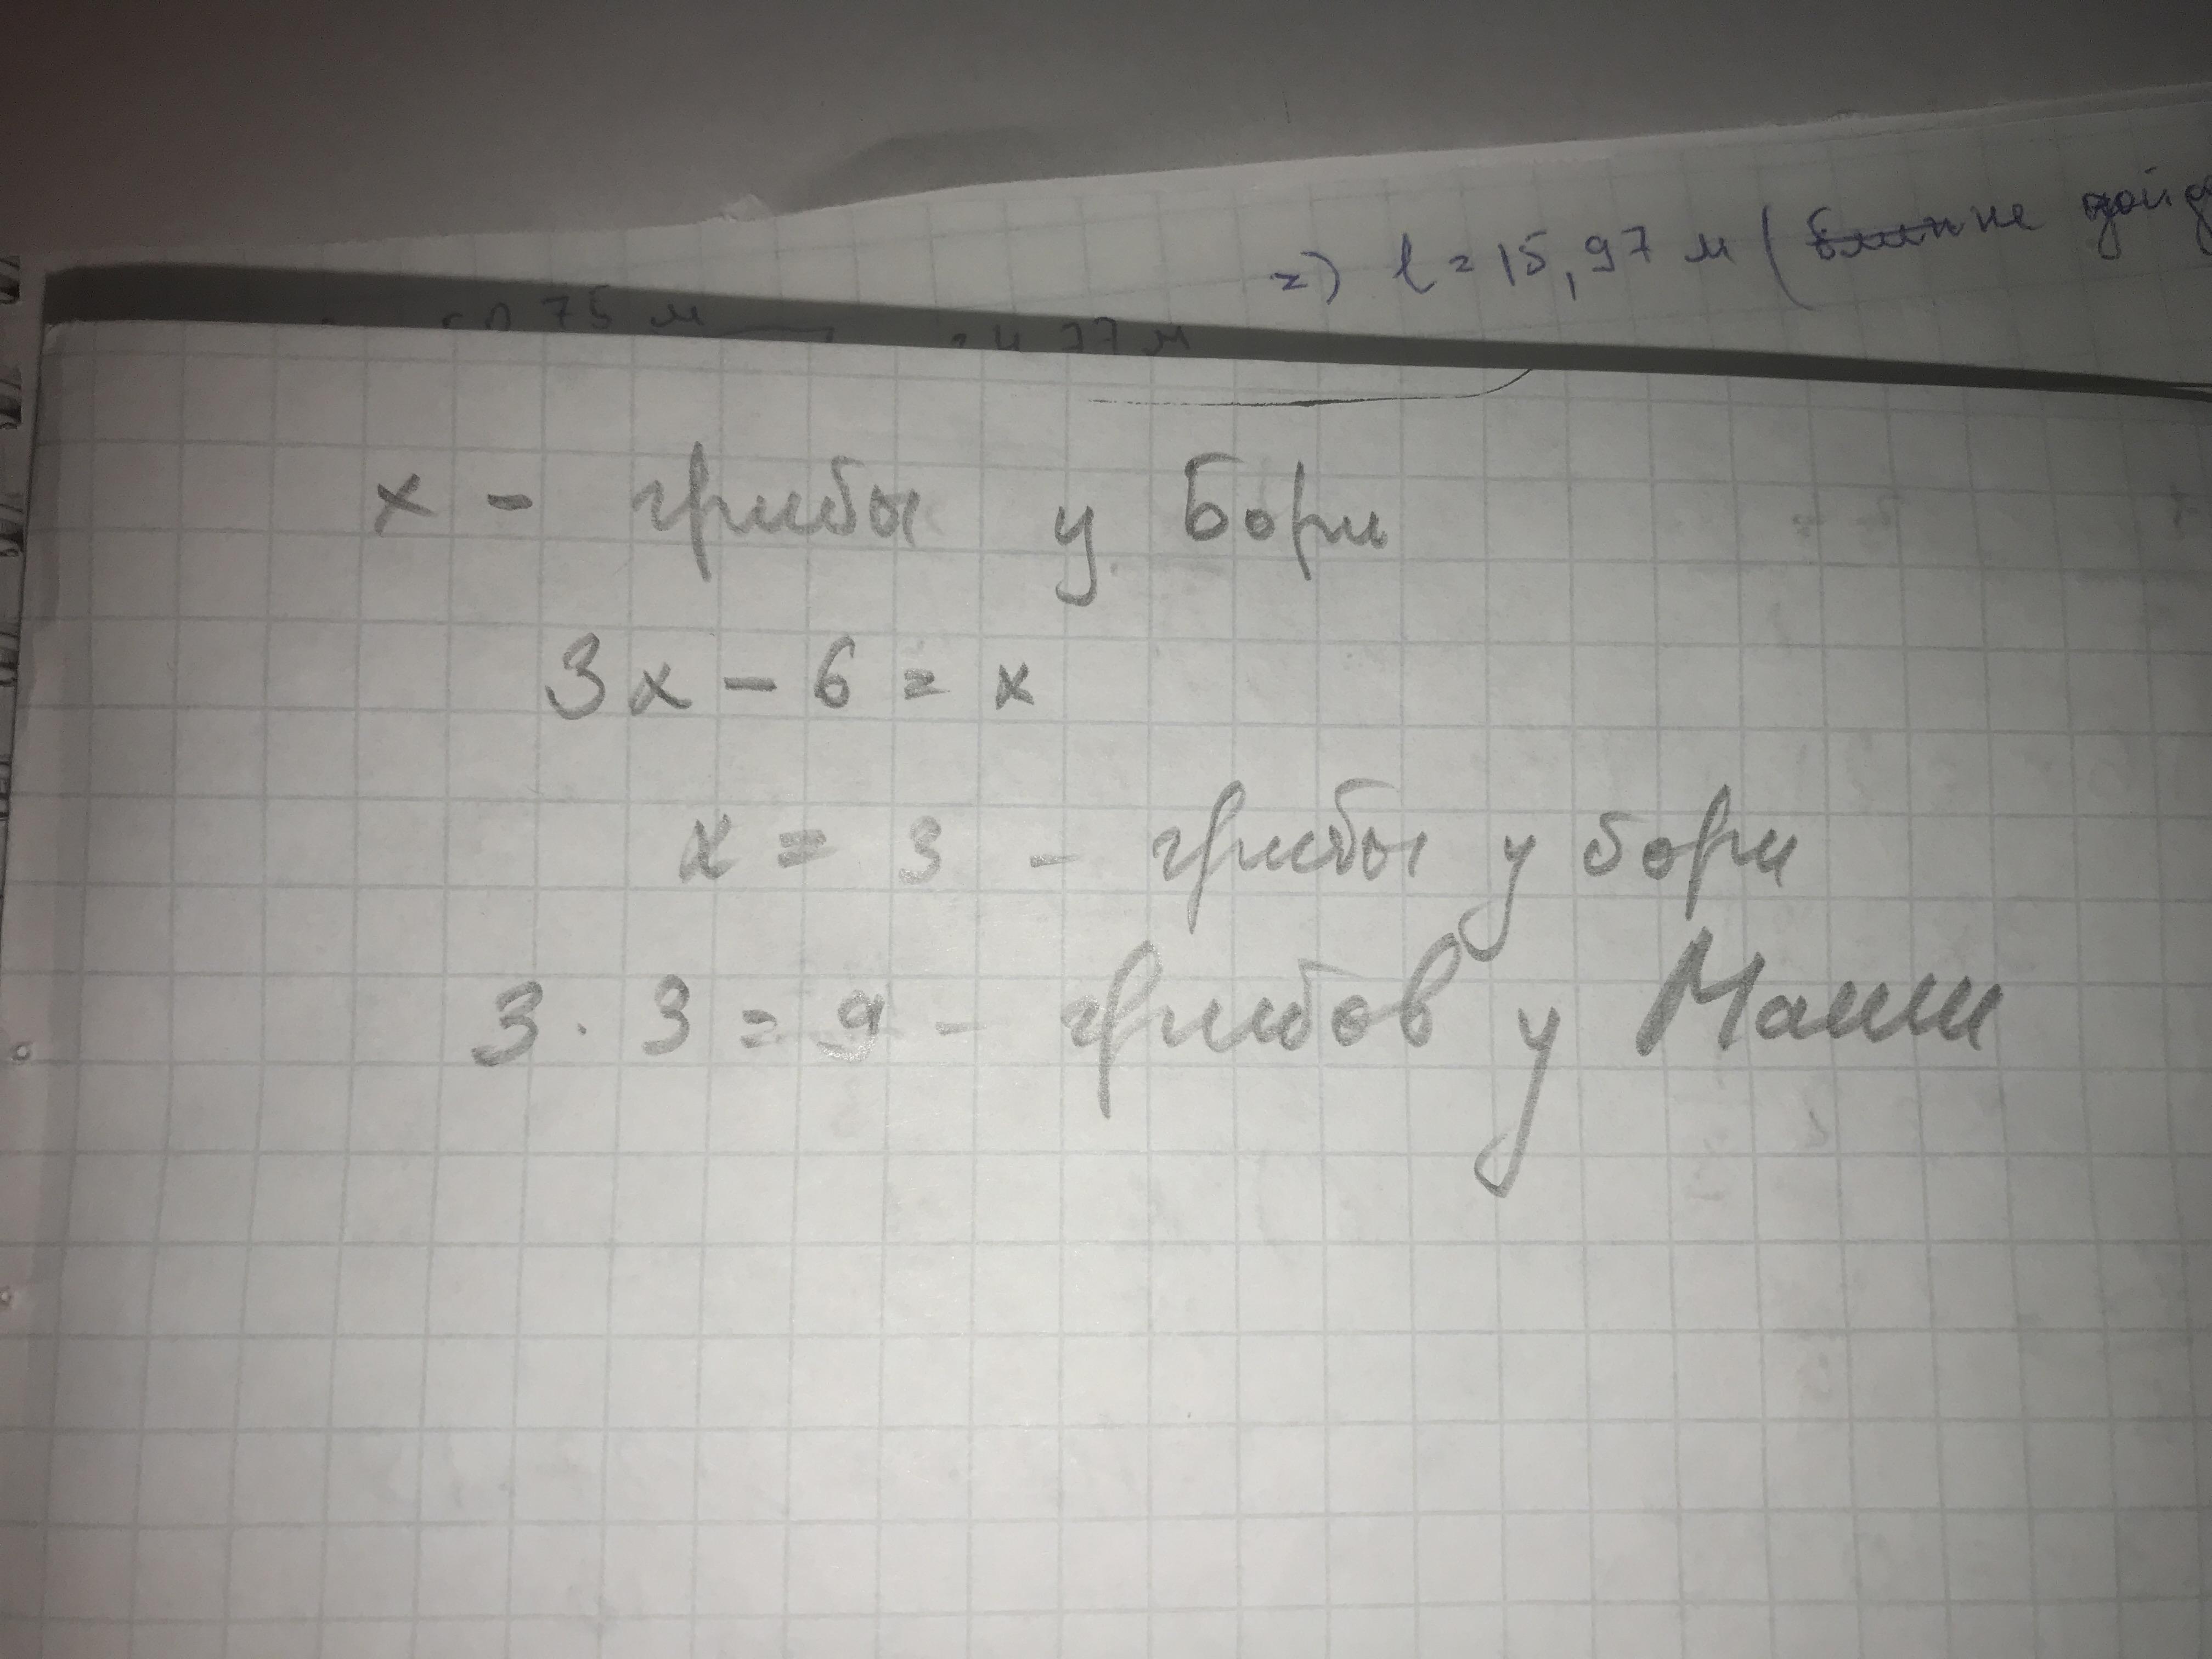 2) l = 15,97 м ( не
75 м 4,77 м
x - грибы у Бори
3x - 6 = x
x = 3 - грибы у бори
3 · 3 = 9 - грибов у Маши